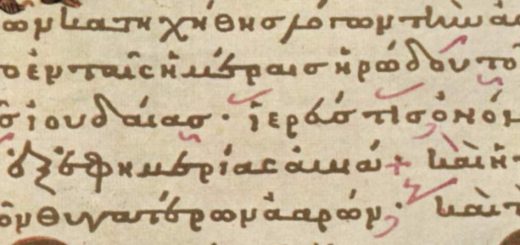 ων κατηχήθησ λόγων τὴν ἀ
το ἐν ταῖς ἡμέραισ ἡρώδου το
ῆσ ἰουδαίασ · ἱερεύσ τισ ὀνό
ἐξ ἐφημερίασ ἀβιά + καὶ ἡ
ῶν θυγατέρων ἀαρών · καὶ τ